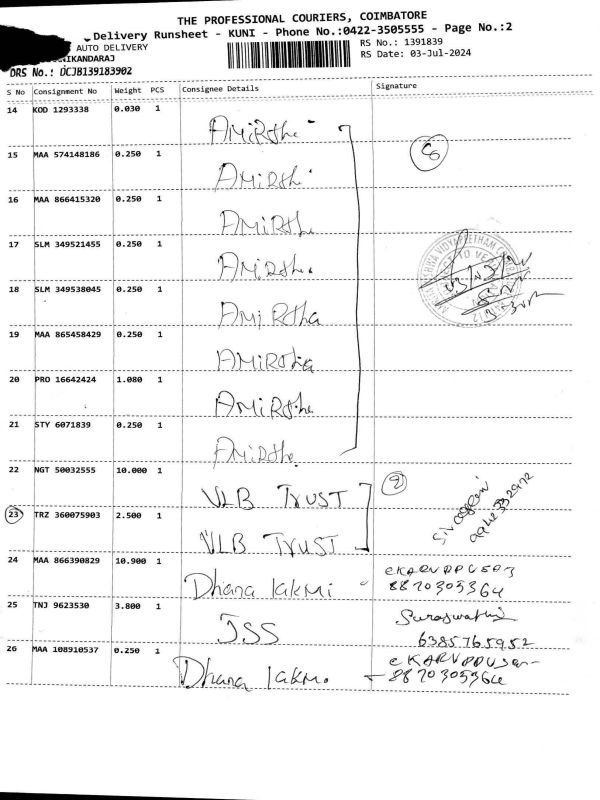 THE PROFESSIONAL COURIERS, COIMBATORE
Delivery Runsheet - KUNI - Phone No.:0422-3505555 - Page No.:2
AUTO DELIVERY
RS No.: 1391839
NIKANDARAJ
RS Date: 03-Jul-2024
DRS No.: DCJB139183902
S No Consignment No Weight PCS Consignee Details Signature
14 KOD 1293338 0.030 1 AMiRthe
15 MAA 574148186 0.250 1 AMiRthi
16 MAA 866415320 0.250 1 AMiRtha
17 SLM 349521455 0.250 1 AMiRtha
18 SLM 349538045 0.250 1 AMiRtha
19 MAA 865458429 0.250 1 AMiRtha
20 PRO 16642424 1.080 1 AMiRtha
21 STY 6071839 0.250 1 AMiRthe
22 NGT 50032555 10.000 1 VLB TRUST 2
23 TRZ 360075903 2.500 1 VLB TRUST
24 MAA 866390829 10.900 1 Dhana lakmi
8870305364
25 TNJ 9623530 3.800 1 JSS Saraswathi
6385765952
26 MAA 108910537 0.250 1 Dhana lakmi
8870305364